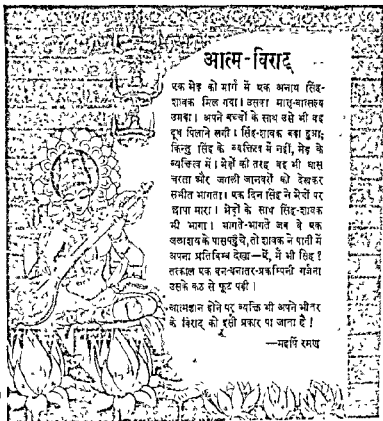 आत्म-विराट्
एक भेड़ को मार्ग में एक अनाथ सिंह-
शावक मिल गया। उसका मातृ-वात्सल्य
उमड़ा। अपने बच्चों के साथ उसे भी वह
दूध पिलाने लगी। सिंह-शावक बड़ा हुआ;
किन्तु सिंह के व्यक्तित्व में नहीं, भेड़ के
व्यक्तित्व में। भेड़ों की तरह वह भी घास
चरता और जंगली जानवरों को देखकर
सभीत भागता। एक दिन सिंह ने भेड़ों पर
छापा मारा। भेड़ों के साथ सिंह-शावक
भी भागा। भागते-भागते जब वे एक
जलाशय के पास पहुंचे, तो शावक ने पानी में
अपना प्रतिबिम्ब देखा—ऐं, मैं भी सिंह?
तत्काल एक वन-वनांतर-प्रकम्पिनी गर्जना
उसके कंठ से फूट पड़ी।
आत्मज्ञान होने पर व्यक्ति भी अपने भीतर
के विराट् को इसी प्रकार पा जाता है!
—महर्षि रमण